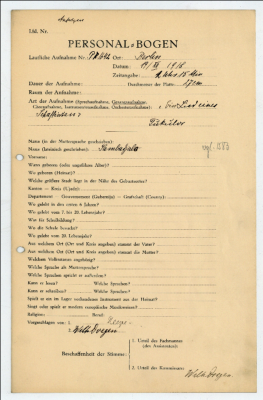 Lfd. Nr.
PERSONAL-BOGEN
Lautliche Aufnahme Nr. Ort: Berlin
Datum:
Zeitangabe:
Dauer der Aufnahme: Durchmesser der Platte: 27 cm
Raum der Aufnahme:
Art der Aufnahme (Sprechaufnahme, Gesangsaufnahme,
Choraufnahme, Instrumentenaufnahme, Orchesteraufnahme):
Name (in der Muttersprache geschrieben):
Name (lateinisch geschrieben):
Vorname:
Wann geboren (oder ungefähres Alter)?
Wo geboren (Heimat)?
Welche größere Stadt liegt in der Nähe des Geburtsortes?
Kanton — Kreis (Ujedz):
Department — Gouvernement (Gubernija) — Grafschaft (County):
Wo gelebt in den ersten 6 Jahren?
Wo gelebt vom 7. bis 20. Lebensjahr?
Was für Schulbildung?
Wo die Schule besucht?
Wo gelebt vom 20. Lebensjahr?
Aus welchem Ort (Ort und Kreis angeben) stammt der Vater?
Aus welchem Ort (Ort und Kreis angeben) stammt die Mutter?
Welchem Volksstamm angehörig?
Welche Sprache als Muttersprache?
Welche Sprachen spricht er außerdem?
Kann er lesen? Welche Sprachen?
Kann er schreiben? Welche Sprachen?
Spielt er ein im Lager vorhandenes Instrument aus der Heimat?
Singt oder spielt er modern europäische Musikweisen?
Religion: Beruf:
Vorgeschlagen von: 1.
Wilh. Doegen
Beschaffenheit der Stimme:
1. Urteil des Fachmannes
(des Assistenten):
2. Urteil des Kommissars:
Wilh. Doegen.